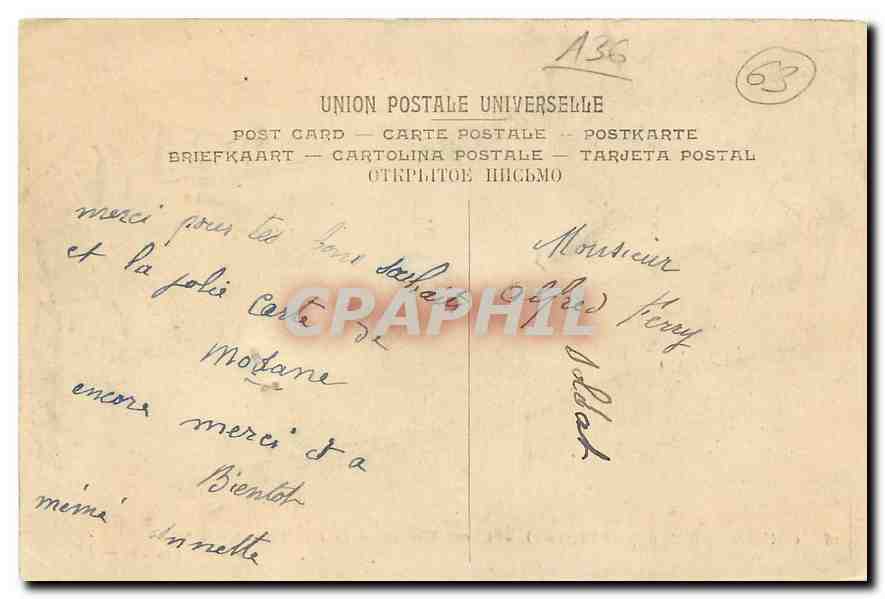 A36
63
UNION POSTALE UNIVERSELLE
POST CARD — CARTE POSTALE — POSTKARTE
BRIEFKAART — CARTOLINA POSTALE — TARJETA POSTAL
ОТКРЫТОЕ ПИСЬМО
merci pour tes bons souhaits
et la jolie carte de
Modane
encore merci & a
Bientot
mémé Annette
Monsieur
Alfred Ferry
soldat
CPAPHIL